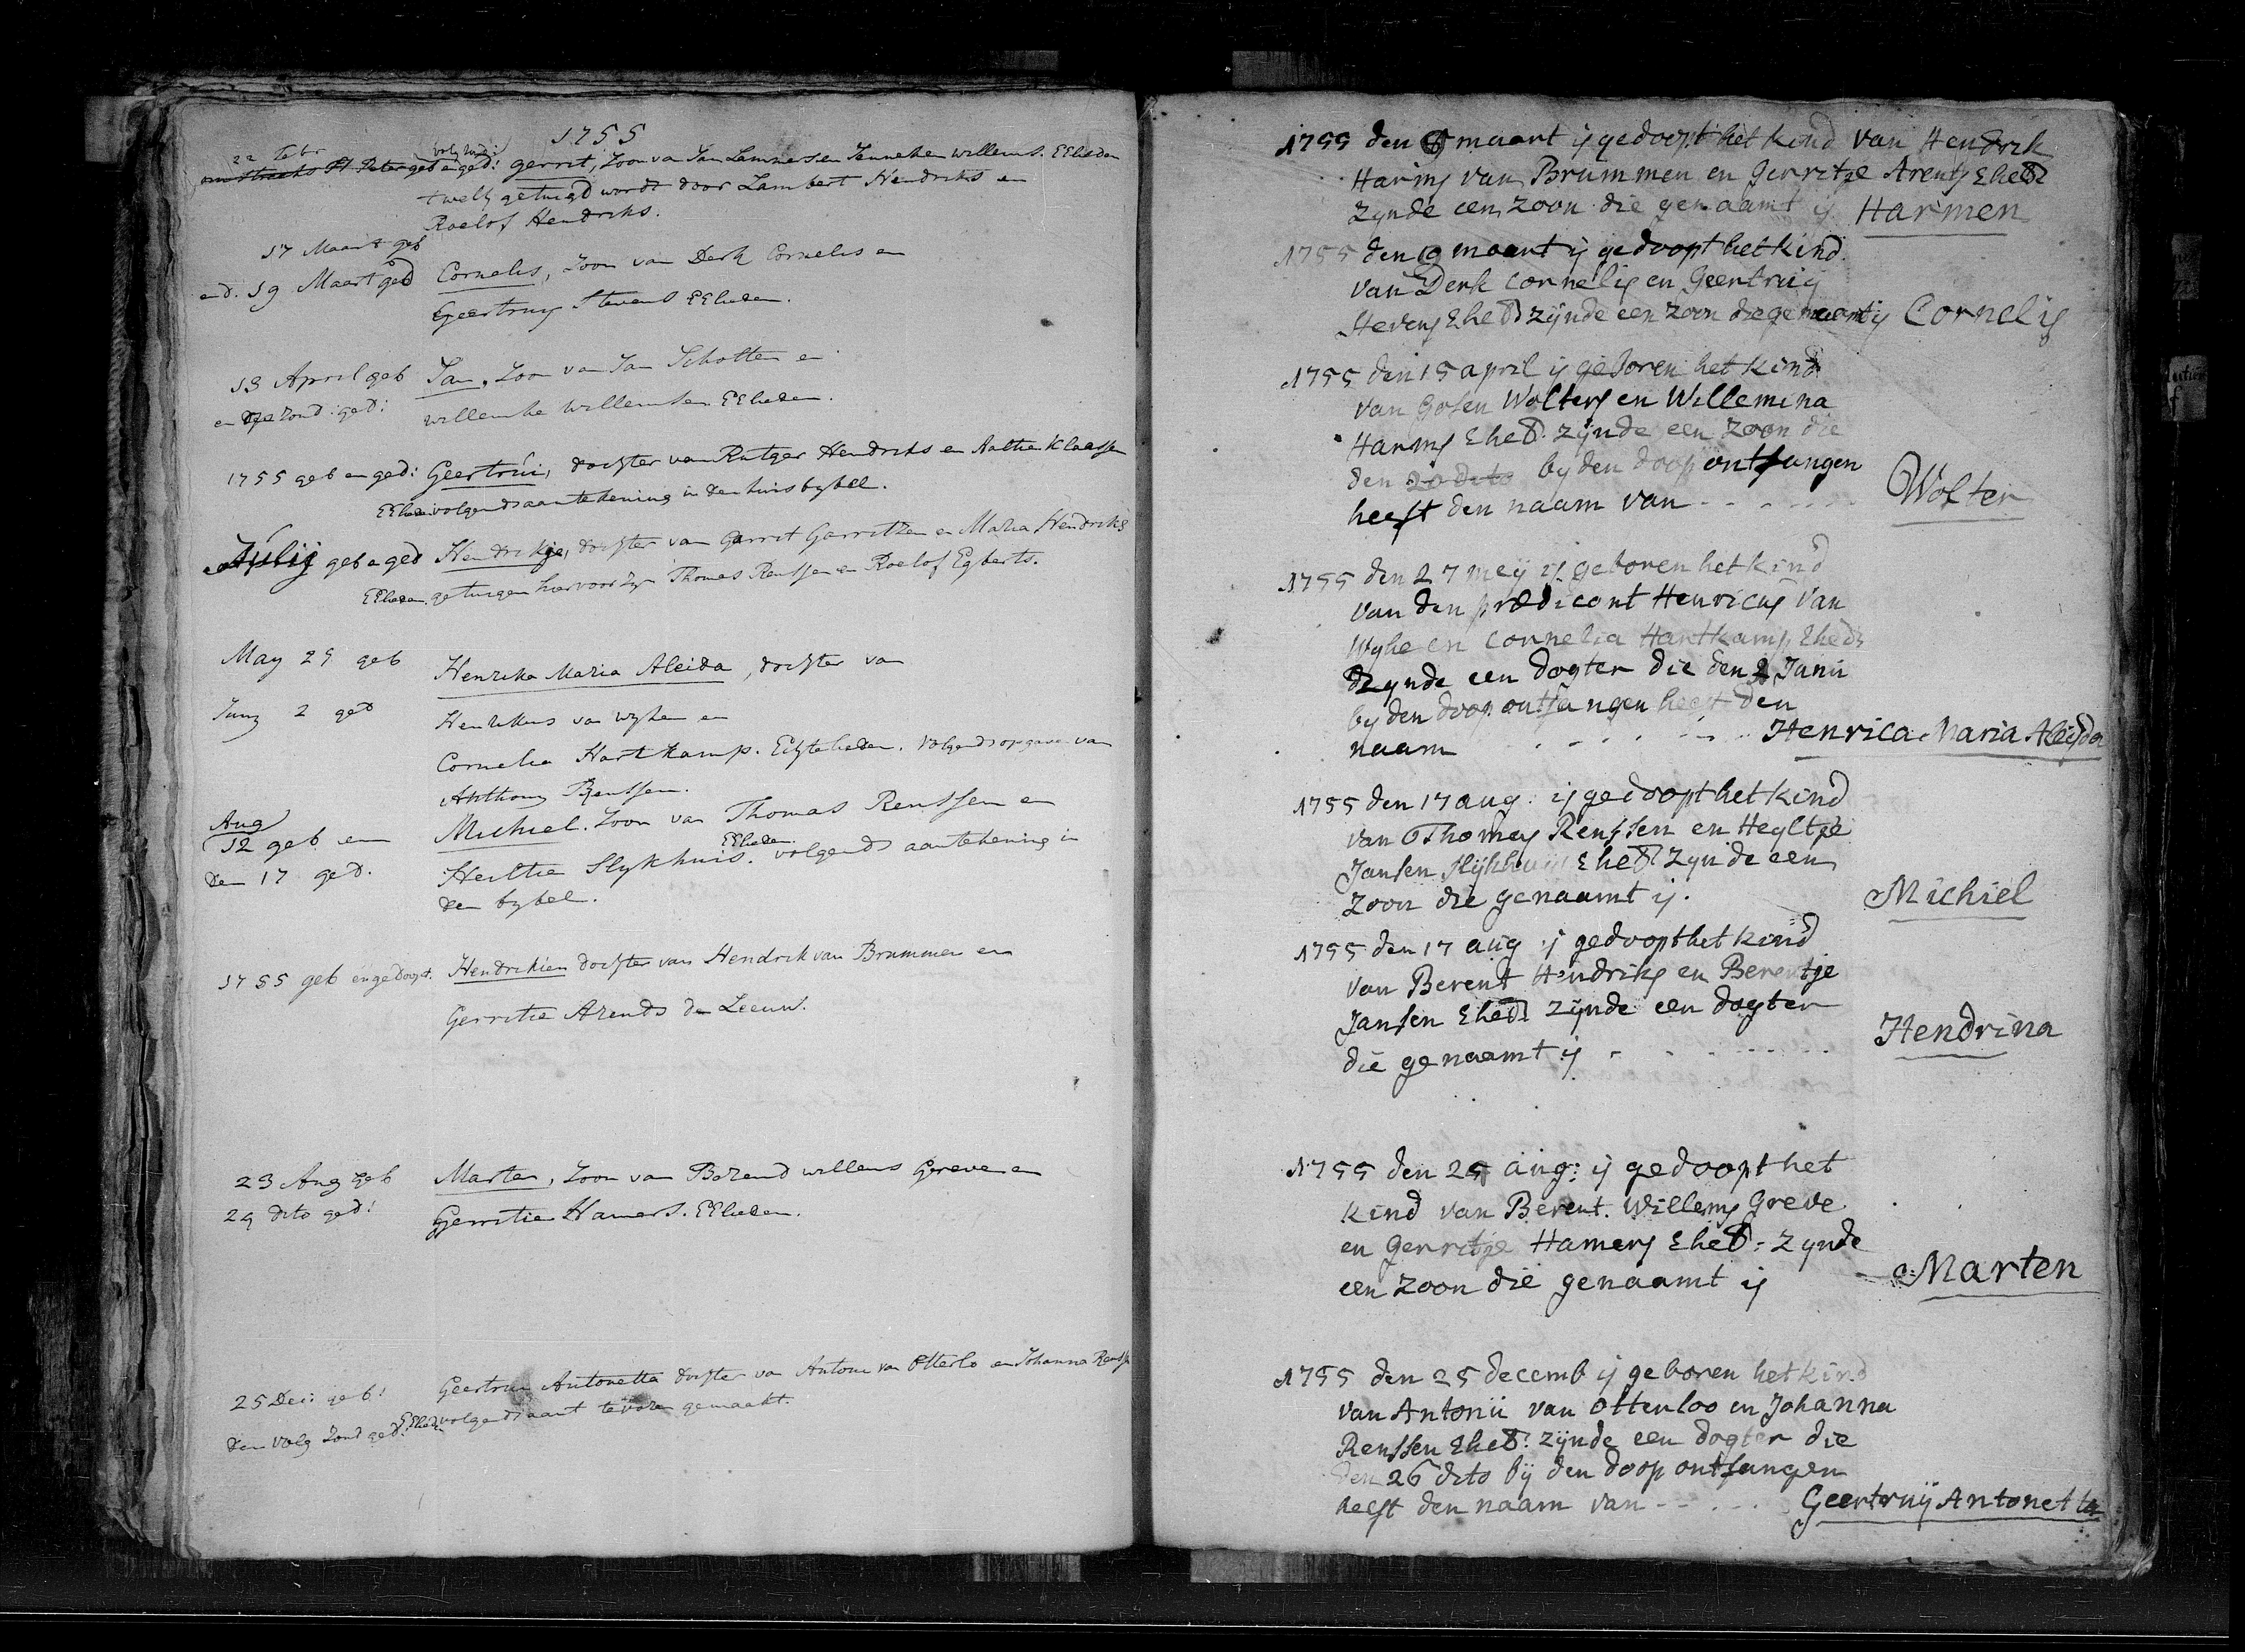 1755
22 febr volg zond:
omstreeks St Peter geb en ged: gerrit, Zoon van Jan Lammersen Jenneken willems. EElieden
twelk getuigd wordt door Lambert Hendriks en
Roelof Hendriks.
17 Maart geb
en d. 19 Maart ged Cornelis, Zoon van Derk Cornelis en
Geertruy Stevens EElieden.
13 April geb Jan, Zoon van Jan Scholten en
en zond: ged: willemke willemsen EElieden.
1755 geb en ged: Geertrui, dochter van Rutger Hendriks en Aaltie Klaassen
EElieden volgends aantekening in den huisbybel.
Julij geb en ged Hendrikje, dochter van Garrit Garritzen en Maria Hendriks
EElieden. getuigen hiervoor zyn Thomas Renssen en Roelof Egberts.
May 29 geb Henrika Maria Aleida, dochter van
Juny 2 ged Henrikus van wyhe en
Cornelia Hartkamp. Echtelieden. volgends opgave van
Anthony Renssen.
Aug
12 geb en Michiel. Zoon van Thomas Renssen en
den 17 ged. Heiltie Slykhuis. EElieden. volgends aantekening in
den bybel.
1755 geb en gedoopt. Hendrikien dochter van Hendrik van Brummen en
Gerritie Arends de Leeuw.
23 Aug geb Marten, Zoon van Berend willems Greven en
24 dito ged: Gerritien Hamers. EElieden.
25 Dec: geb: Geertrui Antonetta dochter van Antoni van Otterlo en Johanna Renss
den volg zond ged: EElieden volgends aant te voren gemaakt.
1755 den maart is gedoopt het kind van Hendrik
Harms van Brummen en Gerritje Arens Ehed
zynde een zoon die genaamt is Harmen
1755 den 19 maart is gedoopt het kind
van Derk Cornelis en Geertruij
Stevens Ehed zijnde een zoon die genaamt is Cornelis
1755 den 15 april is geboren het kind
van Gosen Wolters en Willemina
Harms Ehed. zijnde een zoon die
den 20 dito by den doop ontfangen
heeft den naam van - - - - - - Wolter
1755 den 27 meij is geboren het kind
van den prædicant Henricus van
Wyhe en Cornelia Hartkamp Ehed:
zynde een dogter die den 2 Junii
by den doop ontfangen heeft den
naam - - - - - - Henrica Maria Aleijda
1755 den 17 aug: is gedoopt het kind
van Thomas Renssen en Heyltje
Jansen Slijkhuis Ehed zynde een
zoon die genaamt is. Michiel
1755 den 17 aug is gedoopt het kind
van Berent Hendriks en Berentje
Jansen Ehed: zijnde een dogter
die genaamt is - - - - - - Hendrina
1755 den 24 aug: is gedoopt het
kind van Berent. Willems Greve
en Gerritje Hamers Ehed: zynde
een zoon die genaamt is Marten
1755 den 25 decemb is geboren het kind
van Antonii van Otterloo en Johanna
Renssen Ehed: zijnde een dogter die
den 26 dito bij den doop ontfangen
heeft den naam van - - - - - Geertruij Antonetta